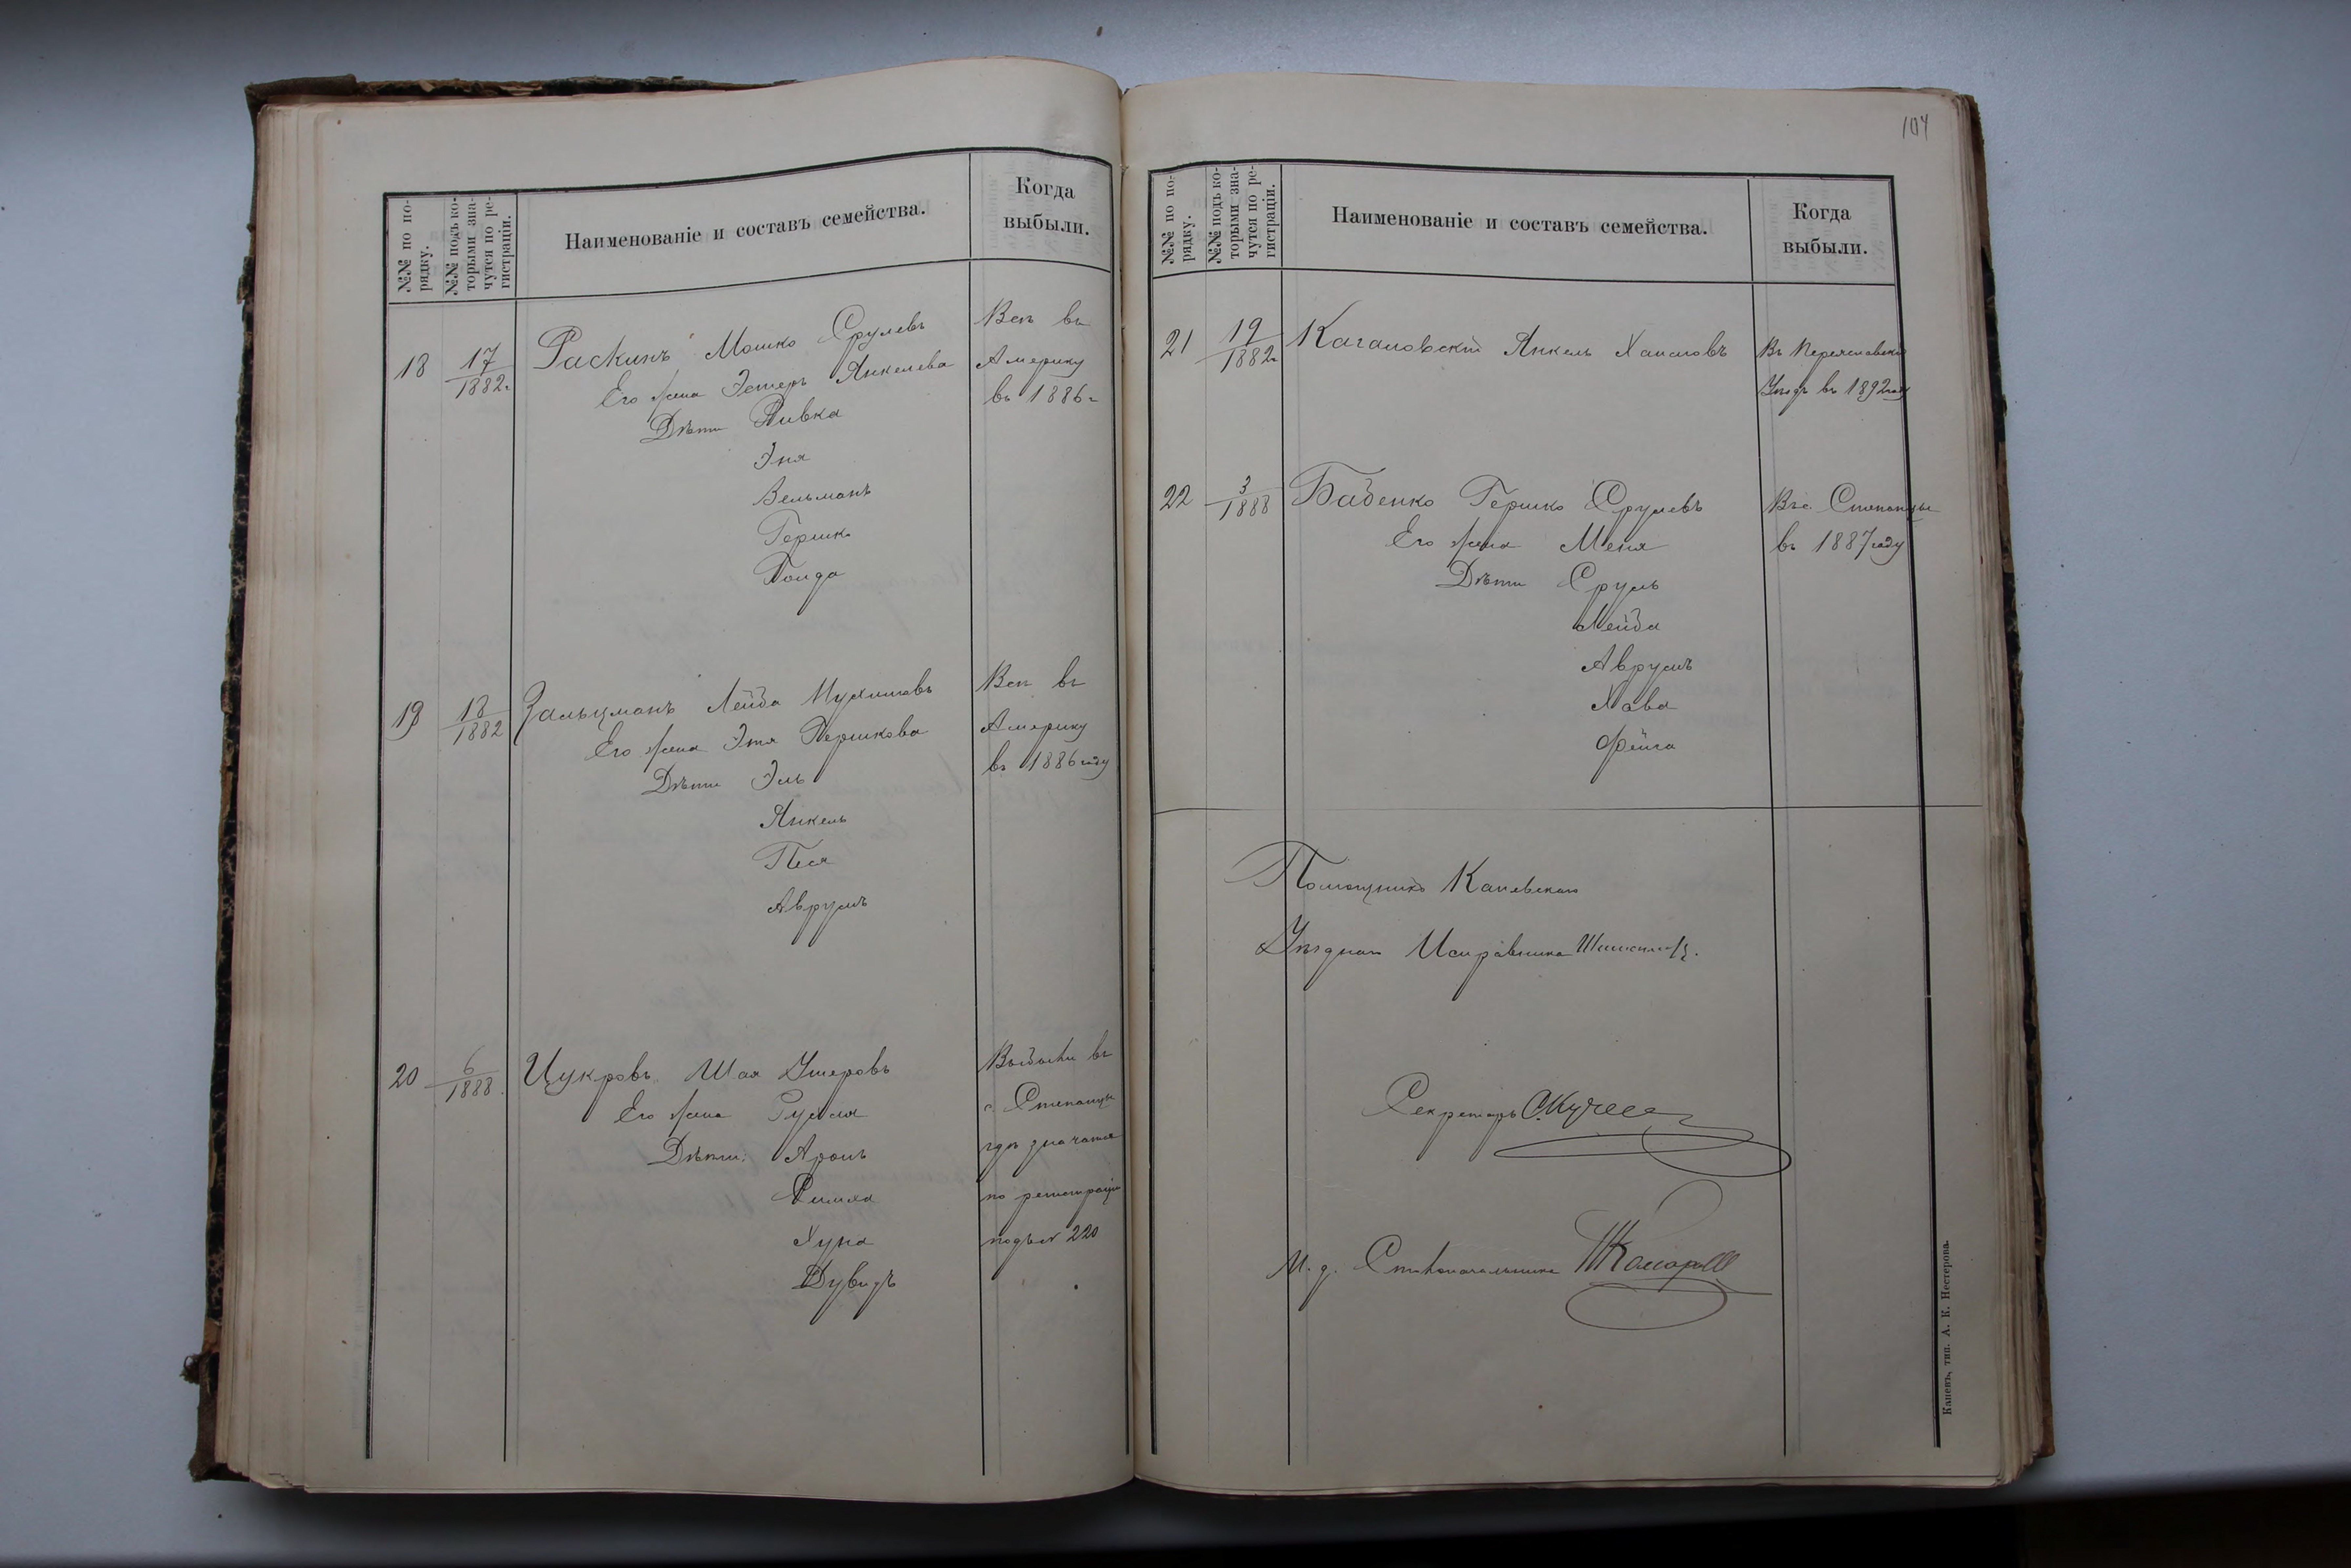 №№ по по-
рядку.
№№ подъ ко-
торыми зна-
чутся по ре-
гистраціи.
Наименованіе и составъ семейства.
Когда
выбыли.
18
17
1882г
Раскинъ Мошко Срулевъ
Его жена Эстеръ Янкелева
Дѣти Ривка
Эня
Зельманъ
Гершко
Голда
Всѣ въ
Америку
въ 1886г
19
18
1882
Зальцманъ Лейба
Его жена Этя Гершкова
Дѣти Эль
Янкель
Песя
Аврумъ
Всѣ въ
Америку
въ 1886 году
20
6
1888.
Цукровъ Шая Ушеровъ
Его жена
Дѣти: Аронъ
Симха
Хуна
Дувидъ
Выбыли въ
с. Степанцы
гдѣ значатся
по регистраціи
подъ № 220
104
№№ по по-
рядку.
№№ подъ ко-
торыми зна-
чутся по ре-
гистраціи.
Наименованіе и составъ семейства.
Когда
выбыли.
21
19
1882г
Кагановскій Янкель Хаимовъ
Въ Переяславскій
Уѣздъ въ 1892 году
22
3
1888
Бабенко Гершко Срулевъ
Его жена Меня
Дѣти Сруль
Лейба
Аврумъ
Хава
Фейга
Въ с. Степанцы
въ 1887 году
Помощникъ Каневскаго
Уѣзднаго Исправника
Секретарь
И. д. Столоначальника
Каневъ, тип. А. К. Нестерова.